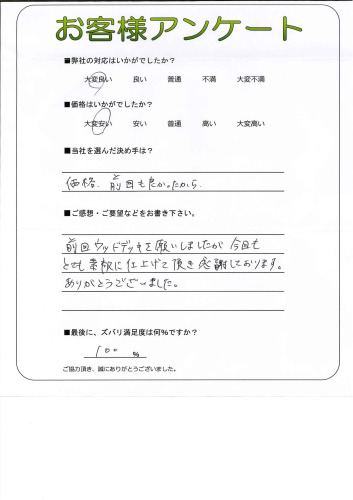 お客様アンケート
■弊社の対応はいかがでしたか?
大変良い 良い 普通 不満 大変不満
■価格はいかがでしたか?
大変安い 安い 普通 高い 大変高い
■当社を選んだ決め手は?
価格、前回も良かったから
■ご感想・ご要望などをお書き下さい。
前回ウッドデッキを願いしましたが今回も
とても素敵に仕上げて頂き感謝しております。
ありがとうございました。
■最後に、ズバリ満足度は何%ですか?
100 %
ご協力頂き、誠にありがとうございました。